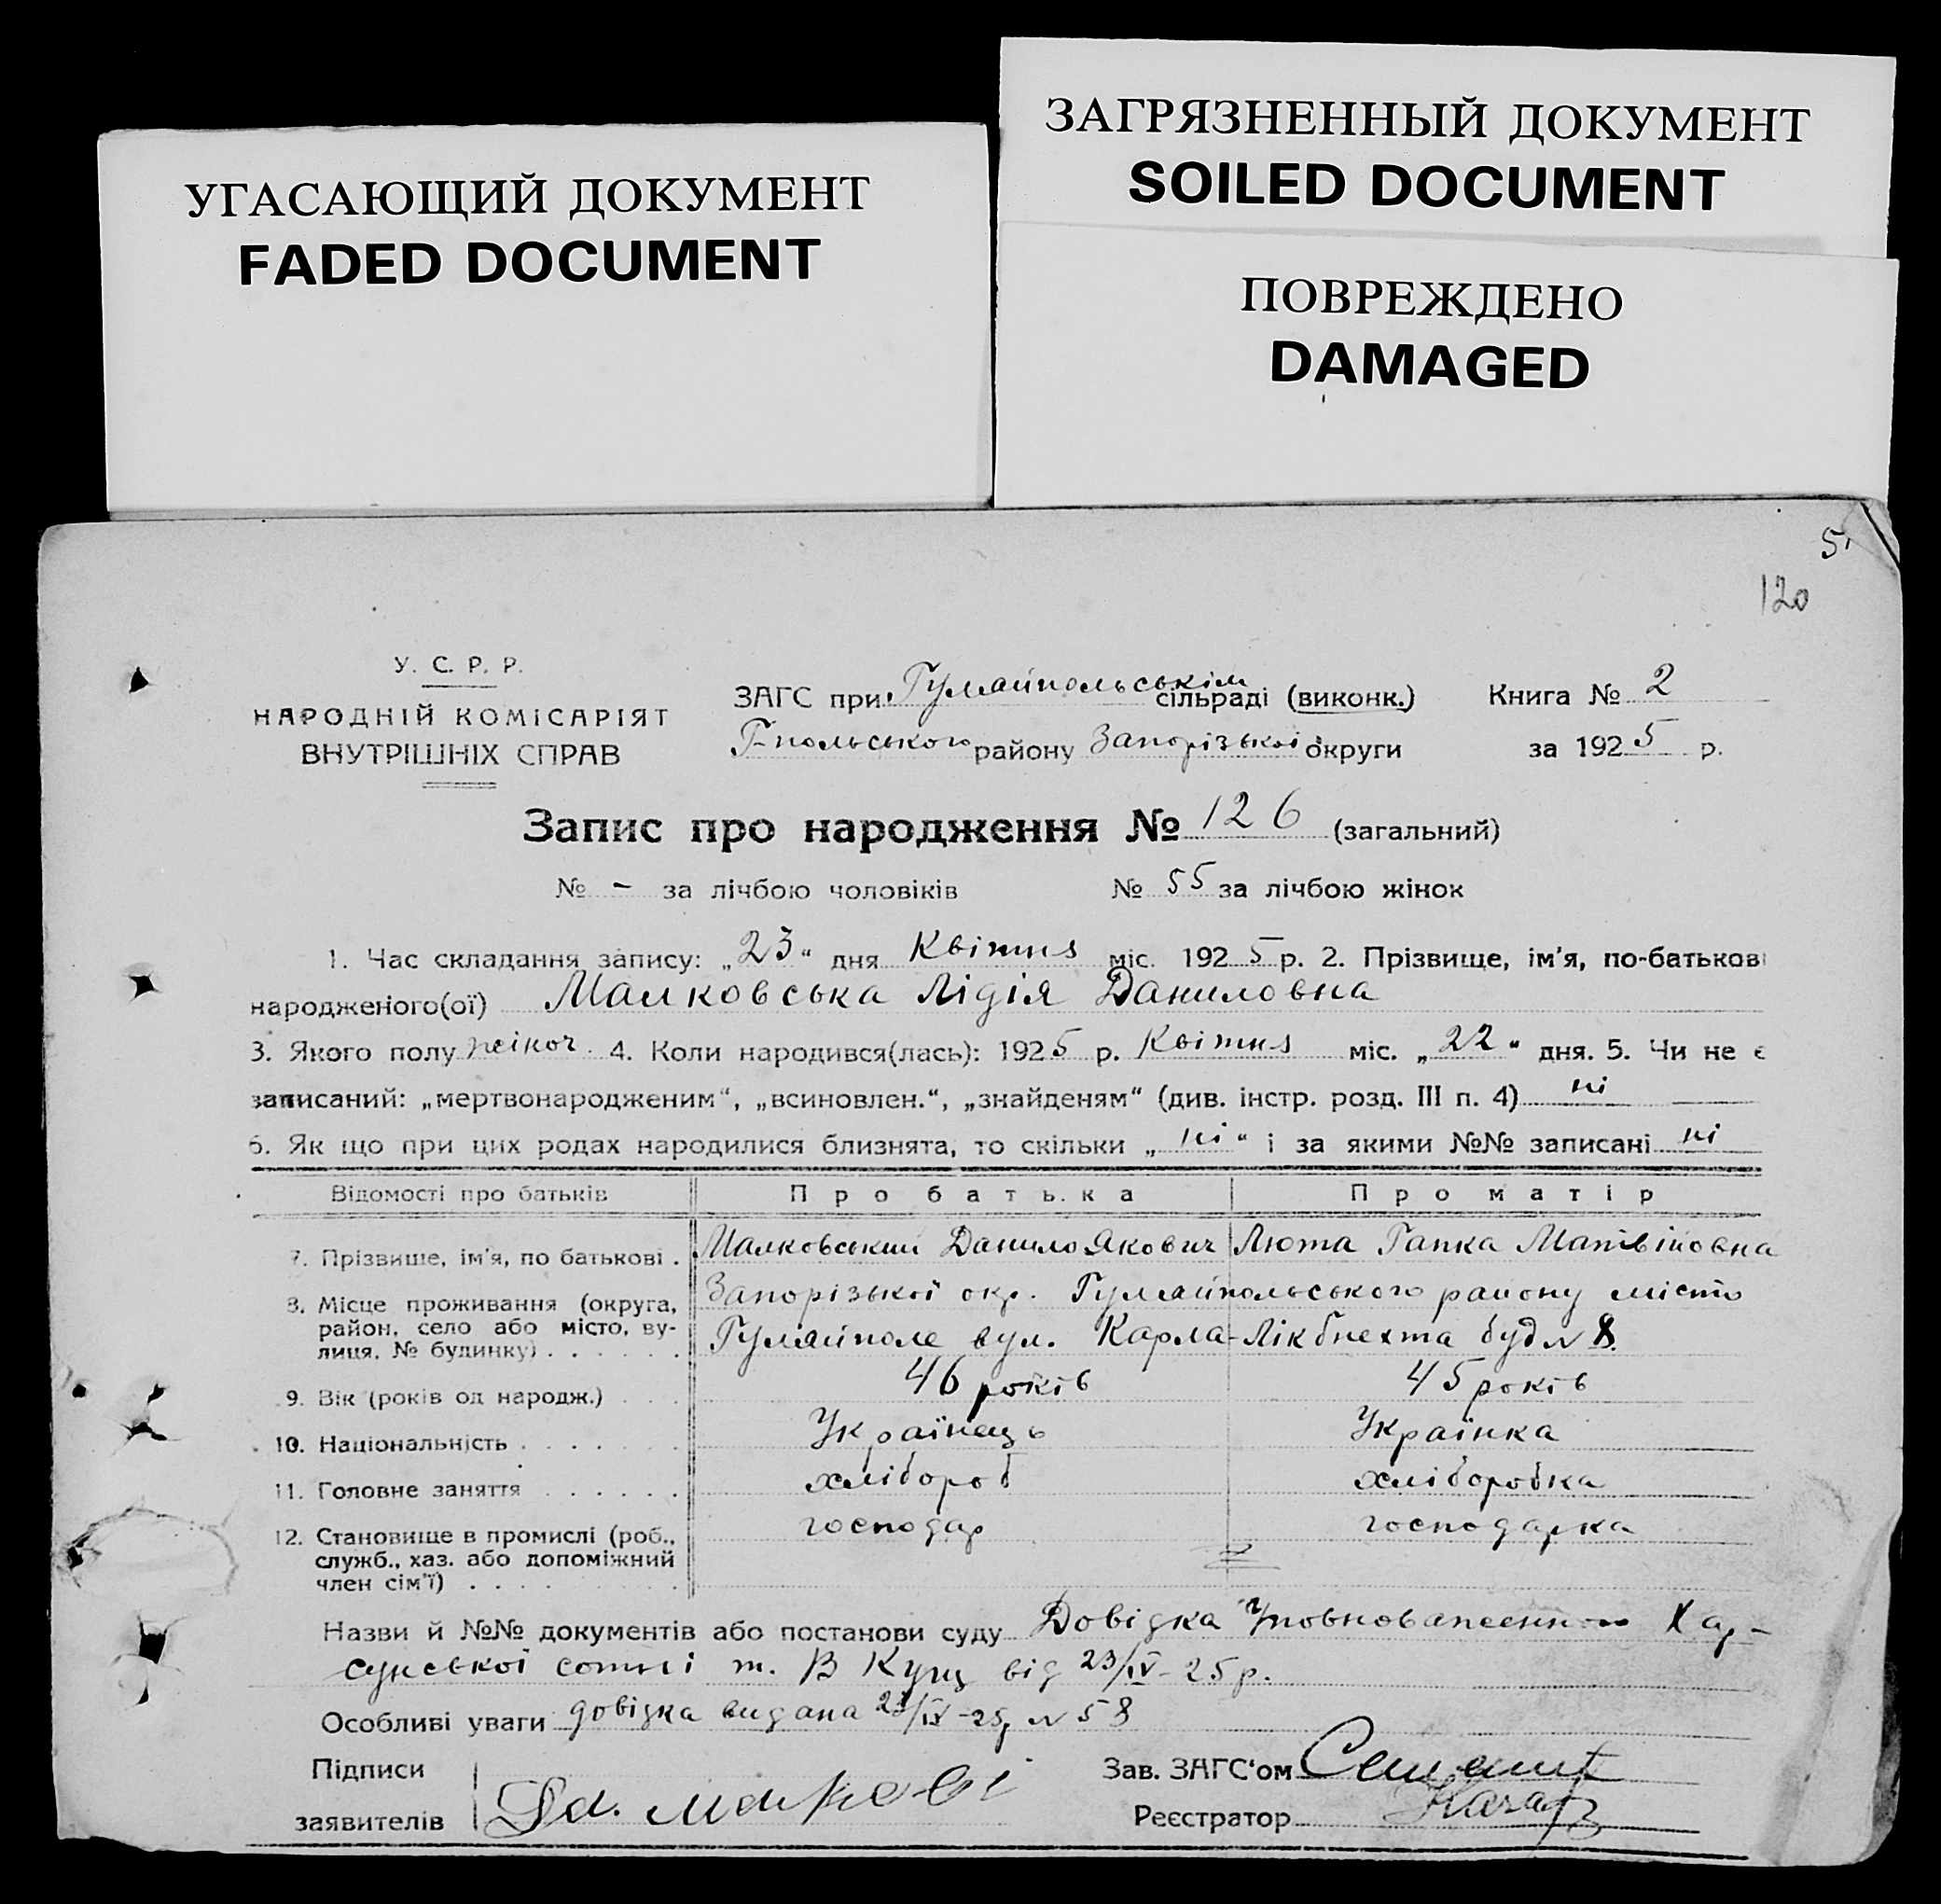 УГАСАЮЩИЙ ДОКУМЕНТ
FADED DOCUMENT
ЗАГРЯЗНЕННЫЙ ДОКУМЕНТ
SOILED DOCUMENT
ПОВРЕЖДЕНО
DAMAGED
5
120
У. С. Р. Р.
НАРОДНІЙ КОМІСАРІЯТ
ВНУТРІШНІХ СПРАВ
ЗАГС при Гуляйпольськім сільраді (виконк.) Книга № 2
Г-польського району Запорізької округи за 1925 р.
Запис про народження № 126 (загальний)
№ - за лічбою чоловіків № 55 за лічбою жінок
1. Час складання запису: „23“ дня Квітня міс. 1925 р. 2. Прізвище, ім'я, по-батькові
народженого(ої) Малковська Лідія Даниловна
3. Якого полу жіноч. 4. Коли народився(лась): 1925 р. Квітня міс. „22“ дня. 5. Чи не є
записаний: „мертвонародженим“, „всиновлен.“, „знайденям“ (див. інстр. розд. III п. 4) ні
6. Як що при цих родах народилися близнята, то скільки „ні“ і за якими №№ записані ні
Відомості про батьків Про батька Про матір
7. Прізвище, ім'я, по батькові . Малковський Данило Якович Люта Гапка Матвійовна
8. Місце проживання (округа, район, село або місто, вулиця, № будинку) . . . . . . Запорізької окр. Гуляйпольського району місто
Гуляйполе вул. Карла-Лікбнехта буд № 8.
9. Вік (років од народж.) . . . 46 років 45 років
10. Національність . . . . . . . Українець Українка
11. Головне заняття . . . . . . хлібороб хліборобка
12. Становище в промислі (роб., служб., хаз. або допоміжний член сім'ї) . . . . господар господарка
Назви й №№ документів або постанови суду Довідка Уповноваженного Хар-
сунської сотні т. В Кущ від 23/IV-25р.
Особливі уваги довідка видана 23/IV-25р № 58
Підписи
заявителів
Зав. ЗАГС'ом
Реєстратор